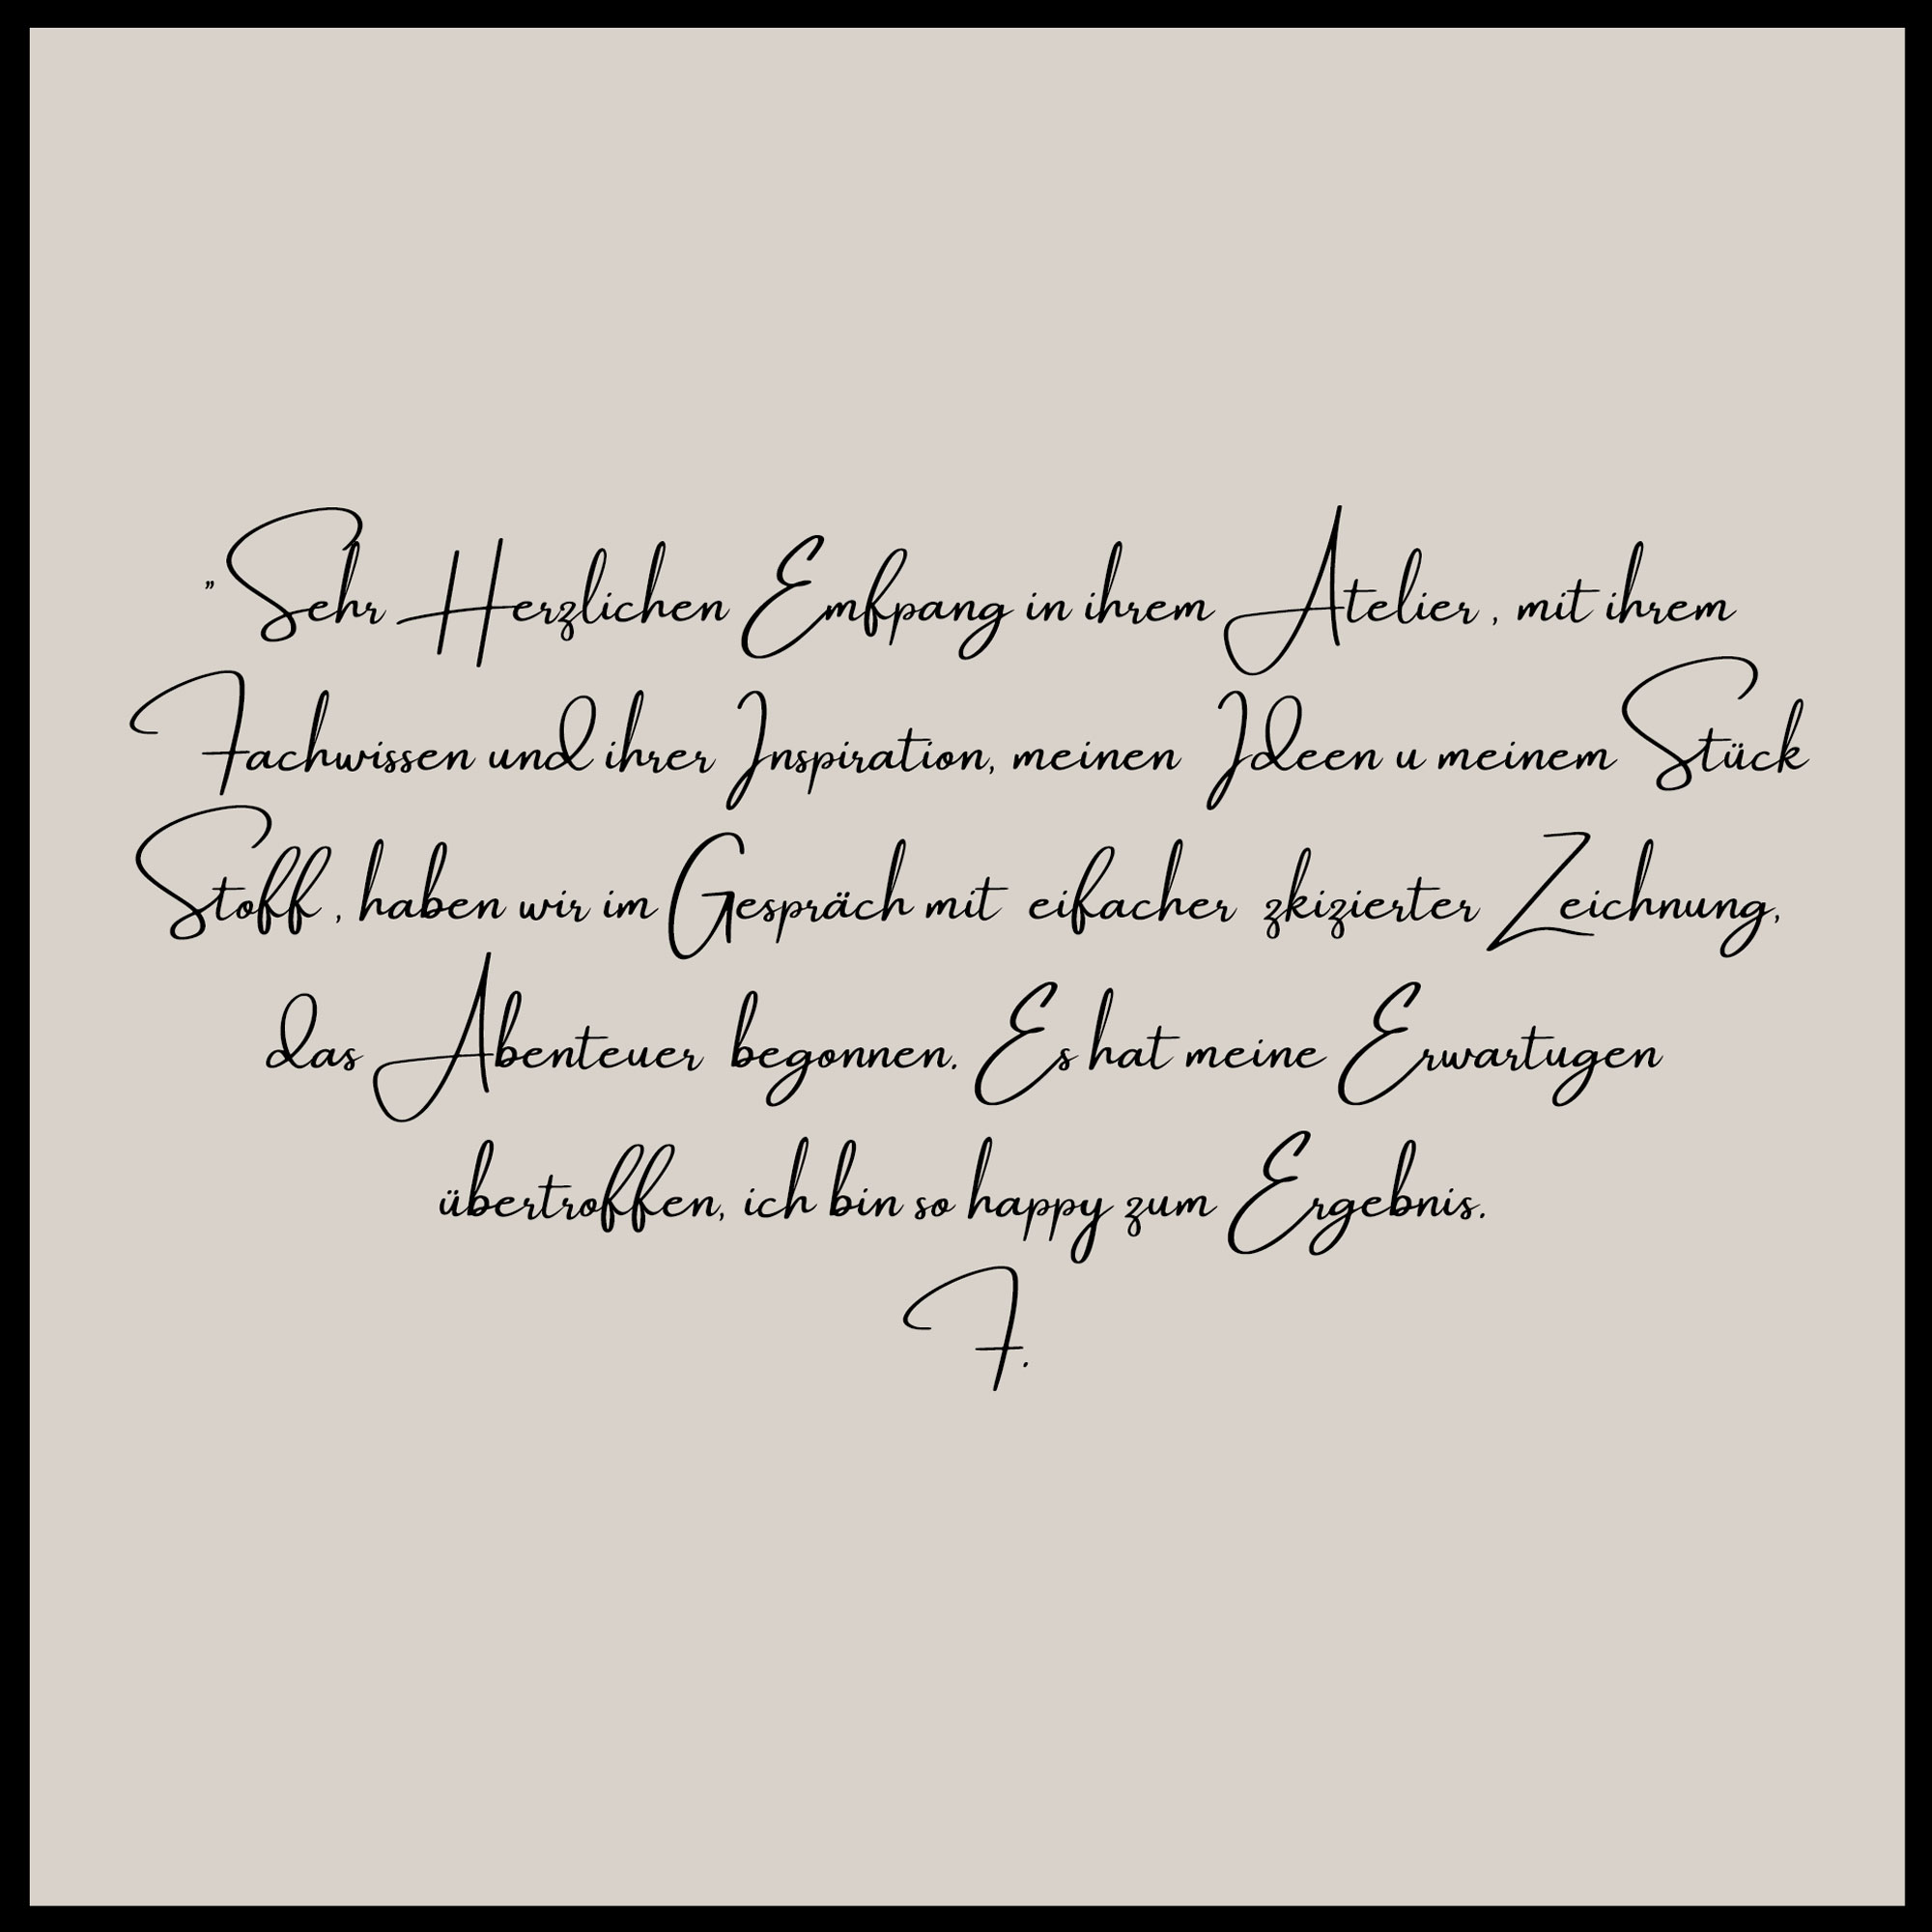 "Sehr Herzlichen Emfpang in ihrem Atelier , mit ihrem
Fachwissen und ihrer Inspiration, meinen Ideen u meinem Stück
Stoff , haben wir im Gespräch mit eifacher zkizierter Zeichnung,
das Abenteuer begonnen. Es hat meine Erwartugen
übertroffen, ich bin so happy zum Ergebnis.
F.